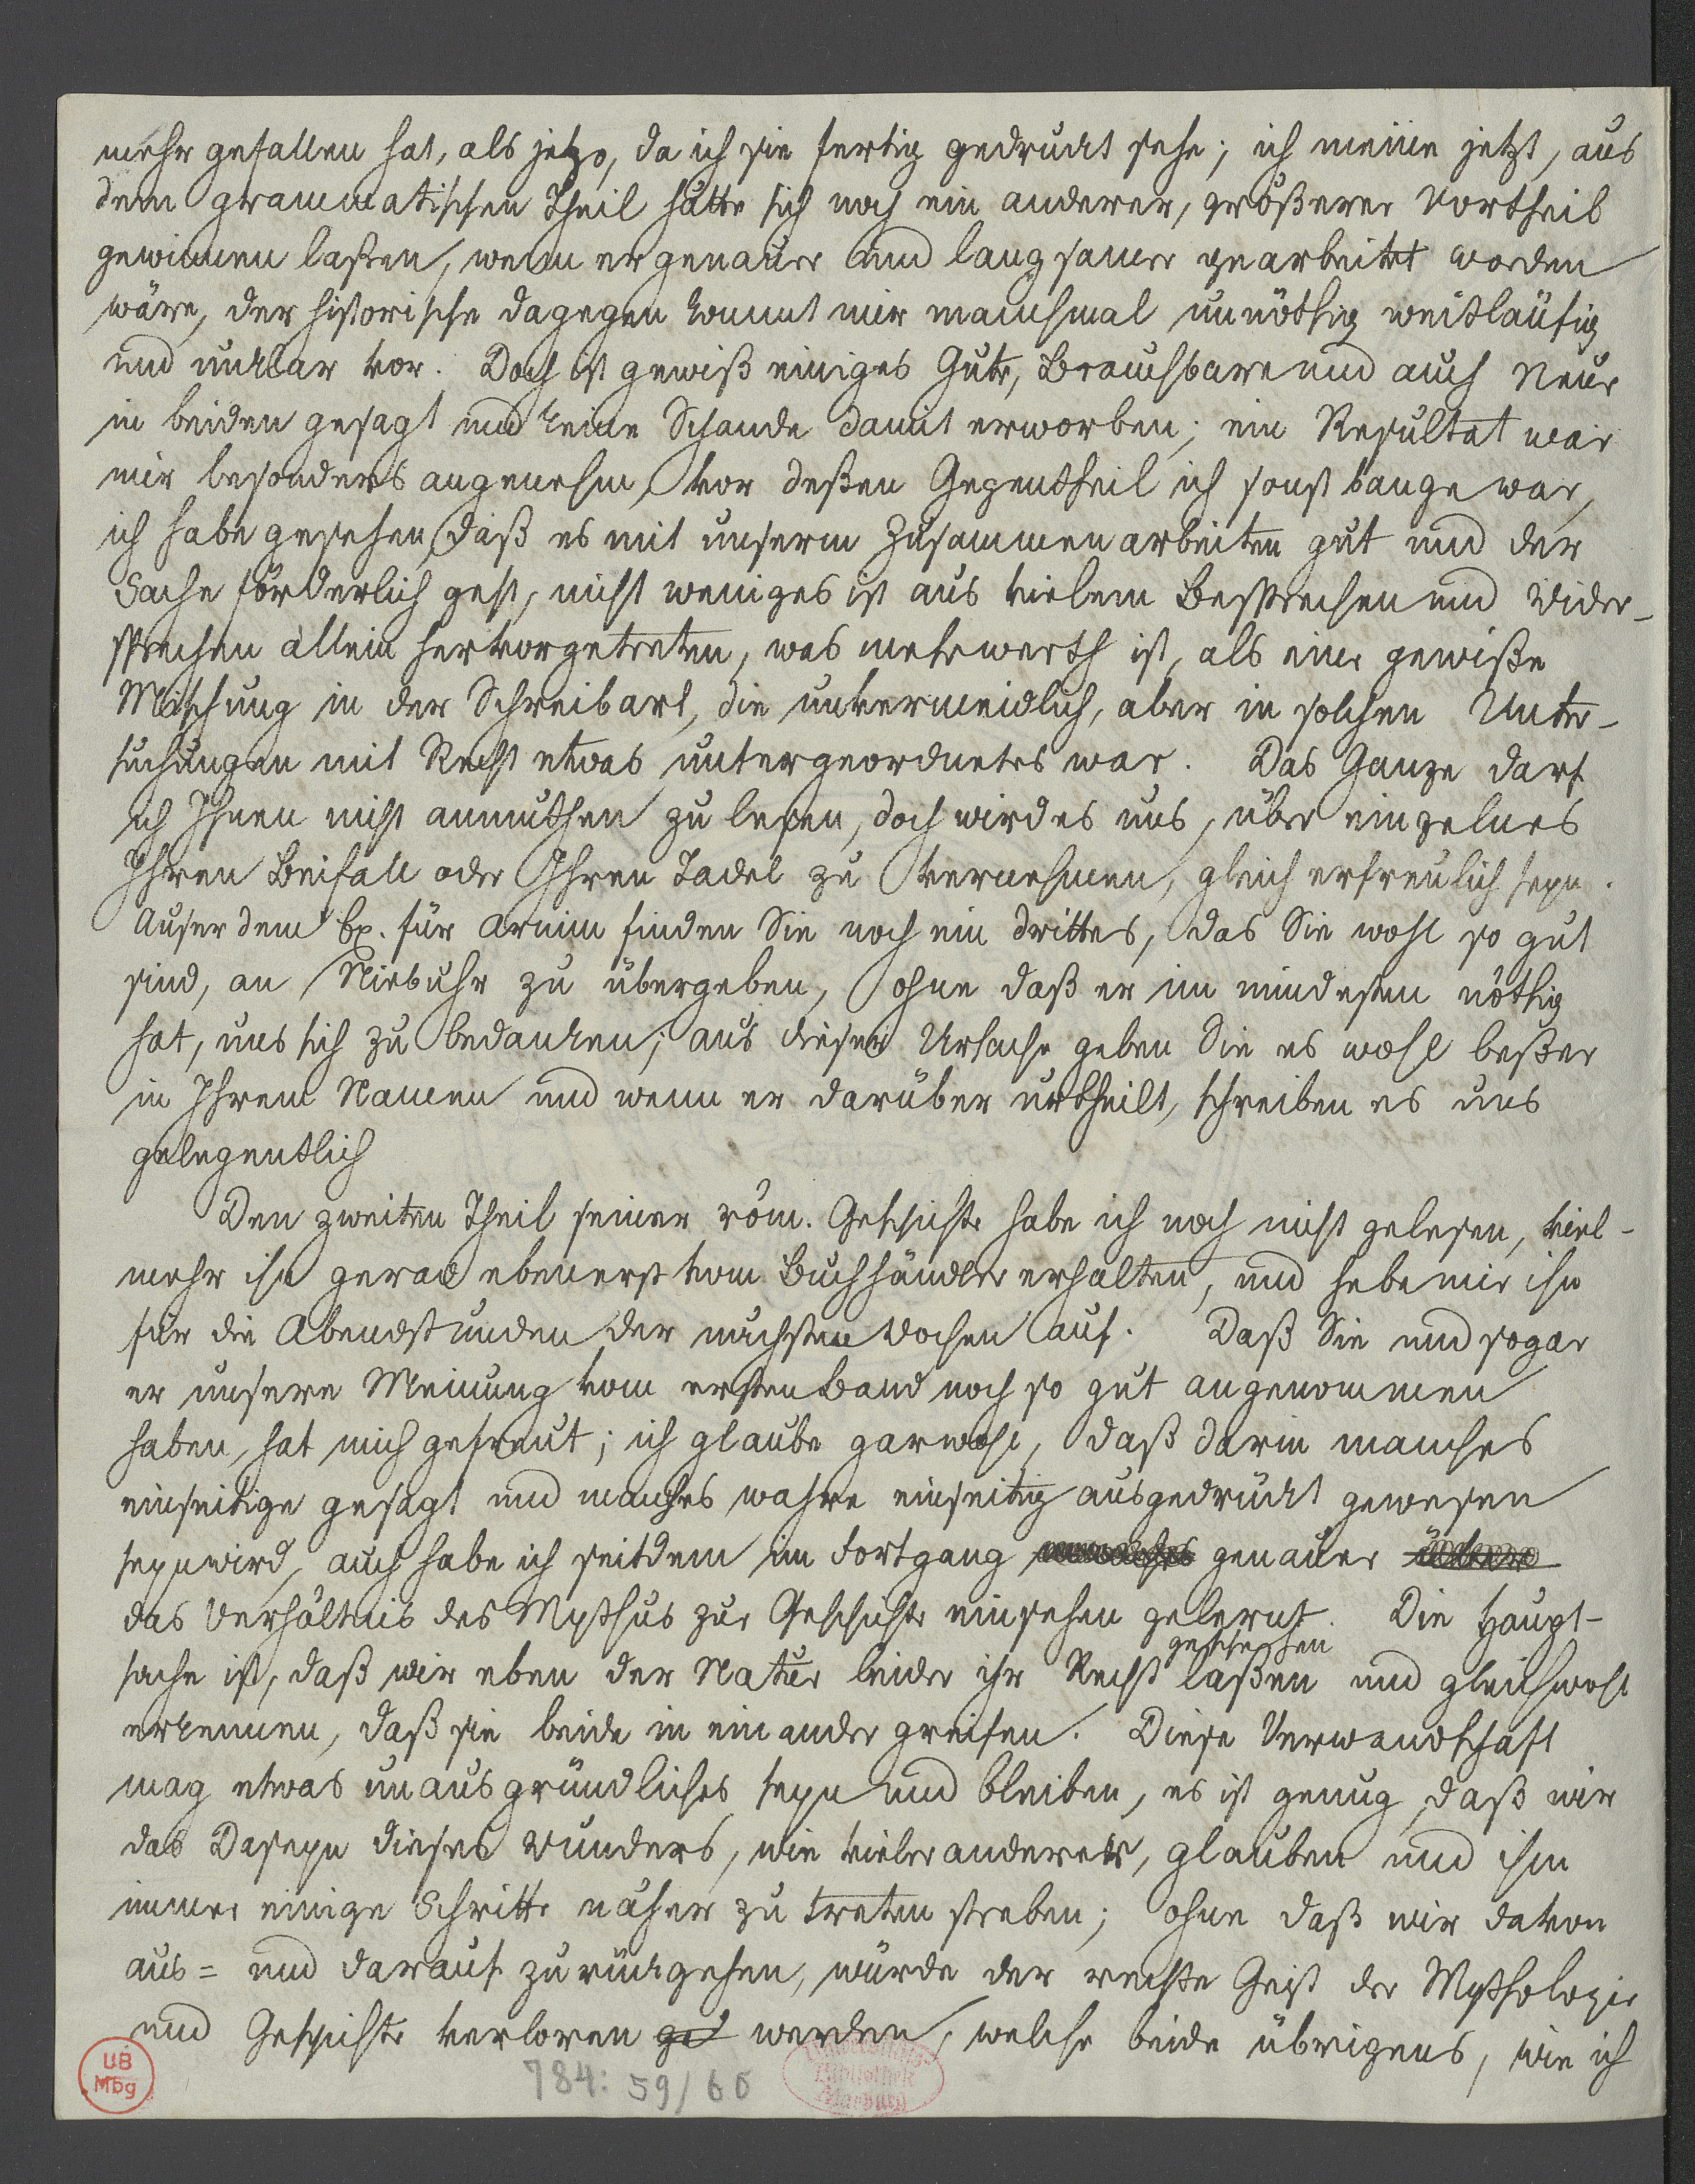 mehr gefallen hat, als jetzo, da ich sie fertig gedruckt sehe; ich meine jetzt, aus
dem grammatischen Theil hätte sich noch ein anderer, größerer Vortheil
gewinnen laßen, wenn er genauer und langsamer gearbeitet worden
wäre, der historische dagegen kommt mir manchmal unnöthig weitläufig
und unklar vor. Doch ist gewiß einiges Gute, Brauchbare und auch Neue
in beiden gesagt und keine Schande damit erworben; ein Resultat war
mir besonders angenehm, vor deßen Gegentheil ich sonst bange war,
ich habe gesehen, daß es mit unserm Zusammenarbeiten gut und der
Sache förderlich geht, nicht weniges ist aus vielem Besprechen und Wider-
sprechen allein hervorgetreten, was mehr werth ist, als eine gewiße
Mischung in der Schreibart, die unvermeidlich, aber in solchen Unter-
suchungen mit Recht etwas untergeordnetes war. Das Ganze darf
ich Ihnen nicht anmuthen zu lesen, doch wird es uns, über einzelnes
Ihren Beifall oder Ihren Tadel zu vernehmen, gleich erfreulich seyn.
Außer dem Ex. für Arnim finden Sie noch ein drittes, das Sie wohl so gut
sind, an Niebuhr zu übergeben, ohne daß er im mindesten nöthig
hat, uns sich zu bedanken; aus dieser Ursache geben Sie es wohl beßer
in Ihrem Namen und wenn er darüber urtheilt, schreiben es uns
gelegentlich
Den zweiten Theil seiner röm. Geschichte habe ich noch nicht gelesen, viel-
mehr ihn gerad eben erst vom Buchhändler erhalten, und hebe mir ihn
für die Abendstunden der nächsten Wochen auf. Daß Sie und sogar
er unsere Meinung vom ersten Band noch so gut angenommen
haben, hat mich gefreut; ich glaube gar wohl, daß darin manches
einseitige gesagt und manches wahre einseitig ausgedrückt gewesen
seyn wird, auch habe ich seitdem im Fortgang genauer
das Verhältnis des Mythus zur Geschichte einsehen gelernt. Die Haupt-
sache ist, daß wir eben der Natur beider ihr Recht geschehen laßen und gleichwohl
erkennen, daß sie beide in einander greifen. Diese Verwandschaft
mag etwas unausgründliches seyn und bleiben, es ist genug, daß wir
das Daseyn dieses Wunders, wie vieler anderer, glauben und ihm
immer einige Schritte näher zu treten streben; ohne daß wir davon
aus= und darauf zurückgehen, würde der rechte Geist der Mythologie
und Geschichte verloren ge werden, welche beide übrigens, wie ich
UB
Mbg
784: 59/60
Universitäts-
Bibliothek
Marburg